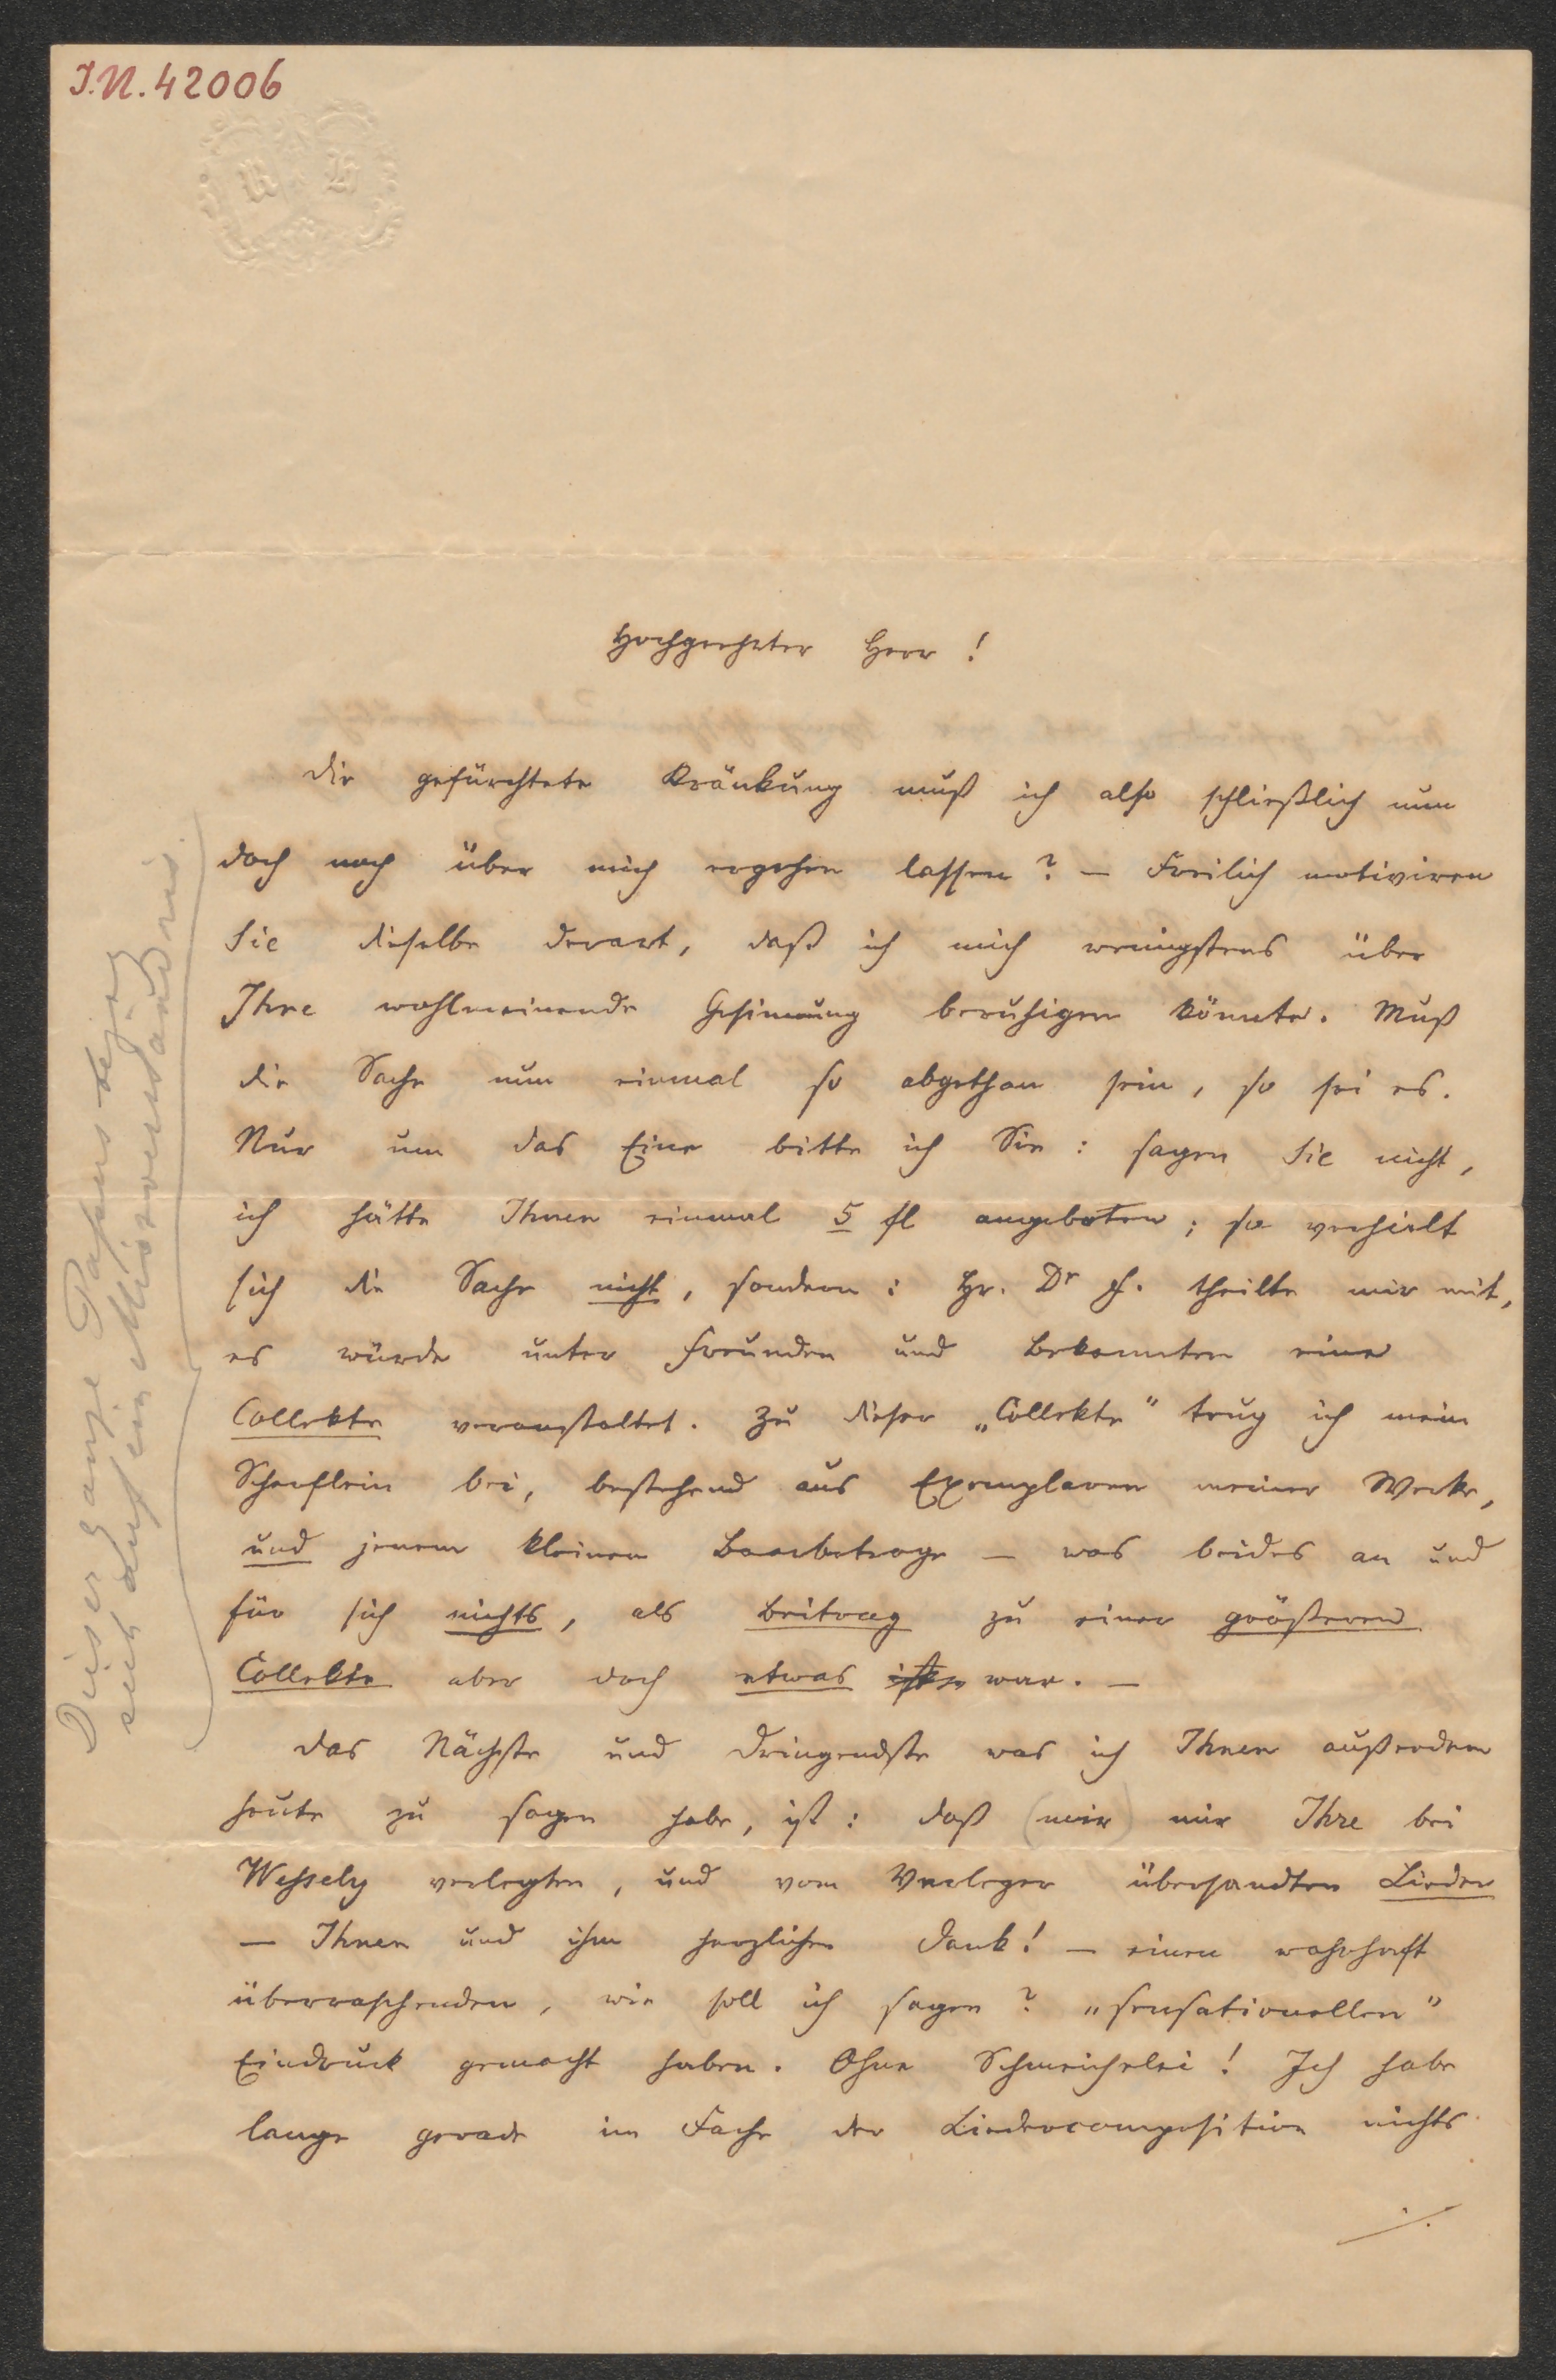 I.N. 42006
Hochgeehrter Herr!
Die gefürchtete Kränkung muß ich also schließlich nun
doch noch über mich ergehen lassen? — Freilich motiviren
Sie dieselbe derart, daß ich mich wenigstens über
Ihre wohlmeinende Gesinnung beruhigen könnte. Muß
die Sache nun einmal so abgethan sein, so sei es.
Nur um das Eine bitte ich Sie: sagen Sie nicht,
ich hätte Ihnen einmal 5 fl angeboten; so verhielt
sich die Sache nicht, sondern: Hr. Dr H. theilte mir mit,
es würde unter Freunden und Bekannten eine
Collekte veranstaltet. Zu dieser „Collekte" trug ich mein
Scherflein bei, bestehend aus Exemplaren meiner Werke,
und jenem kleinen Baarbetrage — was beides an und
für sich nichts, als Beitrag zu einer größeren
Collekte aber doch etwas ist war. —
Das Nächste und Dringendste was ich Ihnen außerdem
heute zu sagen habe, ist: daß (mir) mir Ihre bei
Wessely verlegten, und vom Verleger übersandten Lieder
— Ihnen und ihm herzlichen Dank! — einen wahrhaft
überraschenden, wie soll ich sagen? „sensationellen"
Eindruck gemacht haben. Ohne Schmeichelei! Ich habe
lange gerade im Fache der Liedercomposition nichts
./.
Dieser ganze Passus legiz
sich auf ein Misverständnis.